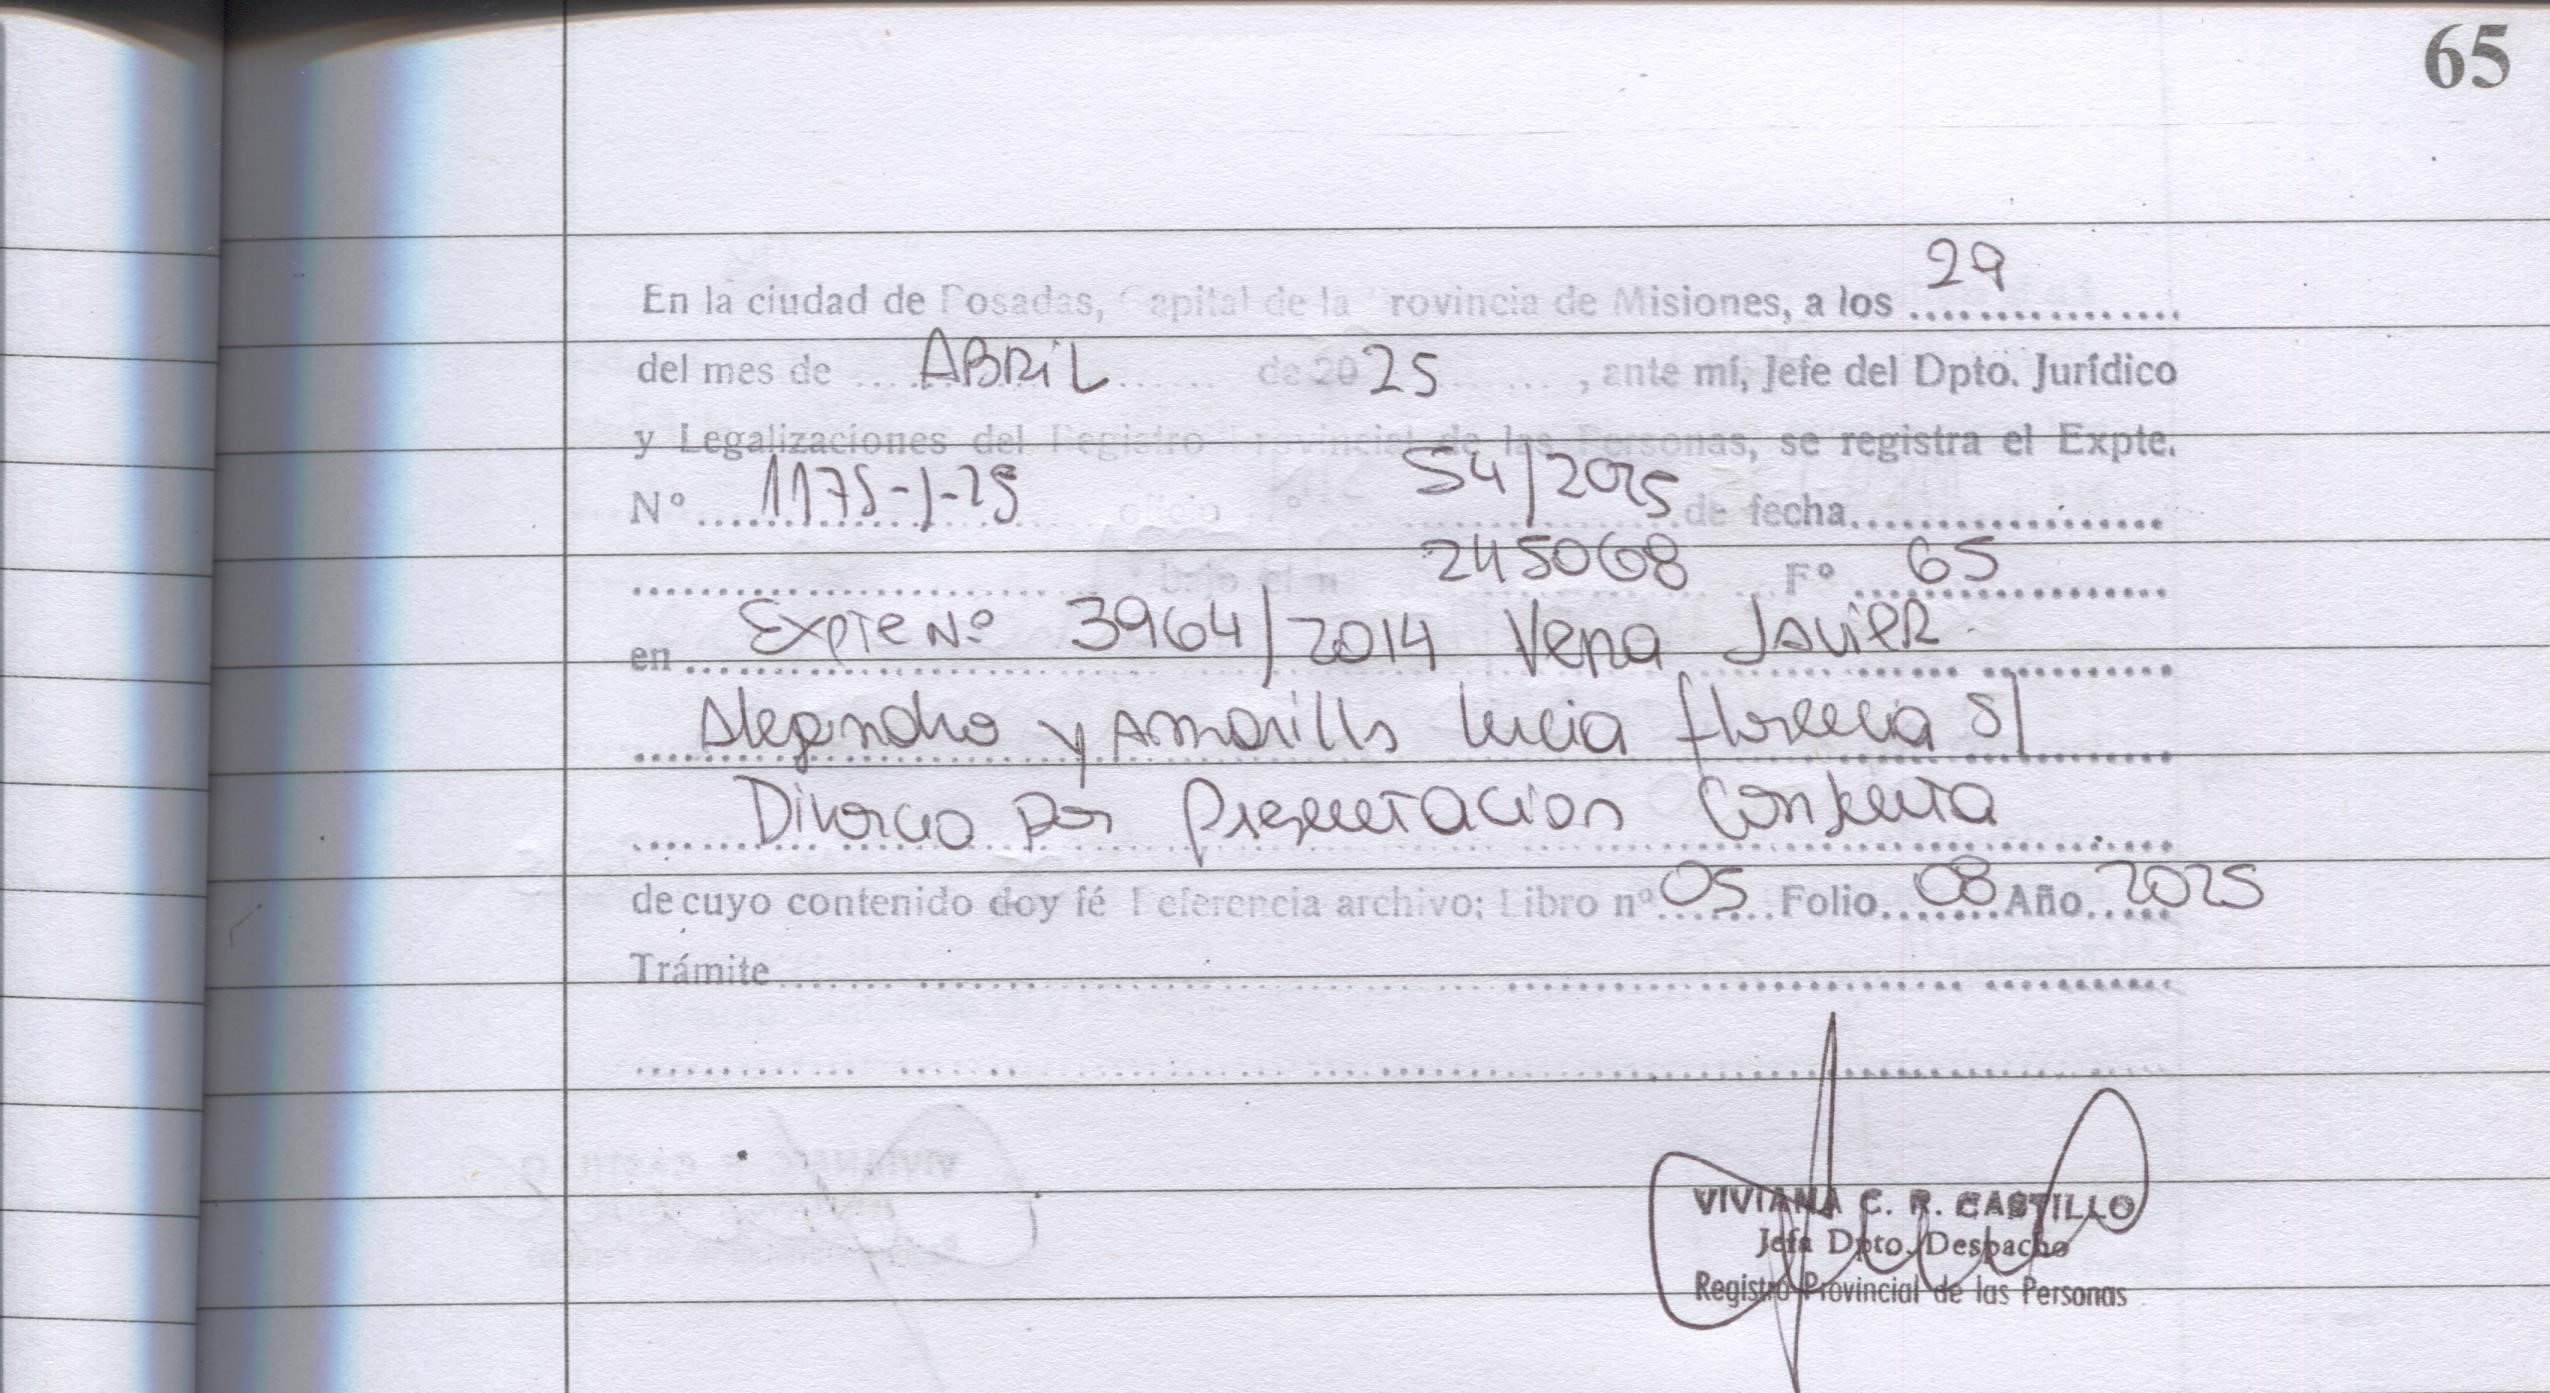 65
En la ciudad de Posadas, Capital de la Provincia de Misiones, a los 29
del mes de ABRIL de 2025, ante mí, Jefe del Dpto. Jurídico
y Legalizaciones del Registro Provincial de las Personas, se registra el Expte.
Nº 1175-J-25 oficio nº 54/2025 de fecha
bajo el nº 245068 Fº 65
en Expte Nº 3964/2014 Vera Javier
Alejandro y Amarilla Lucia Florencia S/
Divorcio por Presentacion Conjunta
de cuyo contenido doy fé Referencia archivo; Libro nº 05 Folio 08 Año 2025
Trámite
VIVIANA C. R. CASTILLO
Jefa Dpto. Despacho
Registro Provincial de las Personas